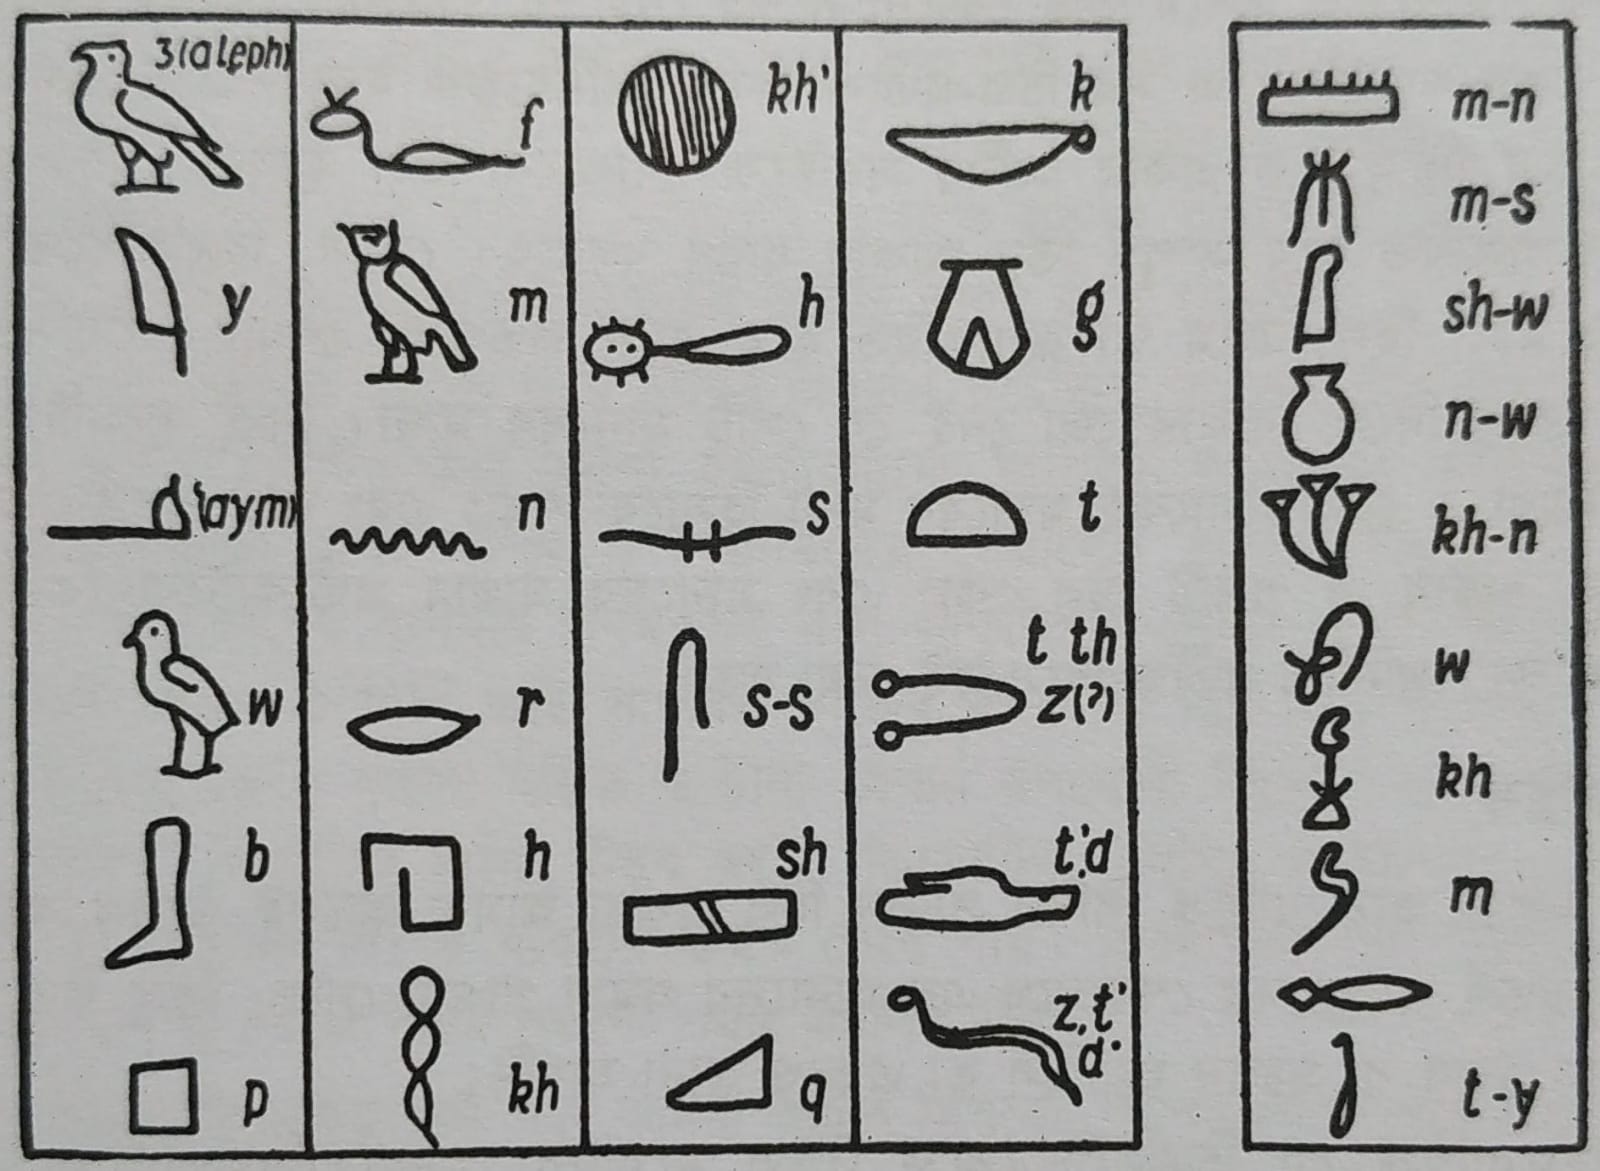 3(aleph)
y
(aym)
w
b
p
f
m
n
r
h
kh
kh'
h
s
s-s
sh
q
k
g
t
t th
z(?)
t'd
z,t'
d'
m-n
m-s
sh-w
n-w
kh-n
w
kh
m
t-y